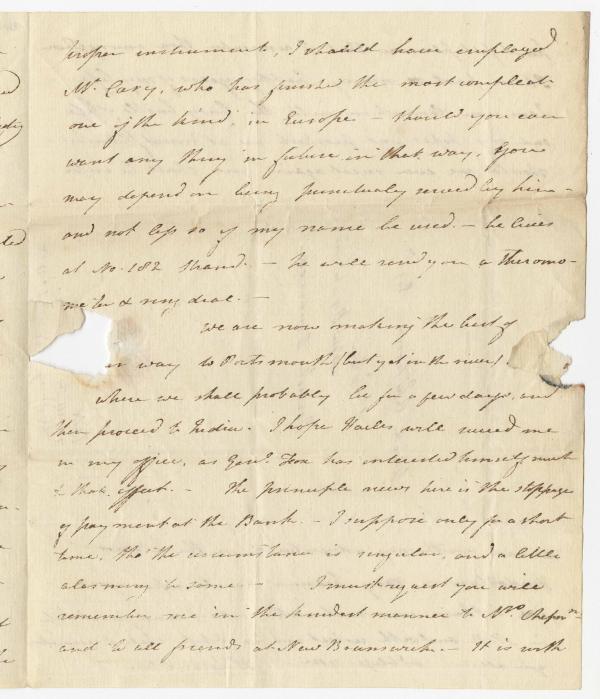 proper instruments, I should have employed
Mr. Cary, who has finished the most compleat
one of the kind in Europe - should you ever
want any thing in future in that way, You
may depend on being punctualy served by him -
and not less so if my name be used. - he lives
at No. 182 Strand. - he will send you a Thermo-
meter & ring dial. -
We are now making the best of
our way to Portsmouth (but yet in the river)
where we shall probably be for a few days, and
then proceed to India. I hope Hailes will succeed me
in my office, as Genl. Fox has interested himself much
to that effect. - The principle news here is the stoppage
of payment at the Bank. - I suppose only for a short
time, tho' the circumstance is singular, and a little
alarming to some. - I must request you will
remember me in the kindest manner to Mrs.
and to all friends at New Brunswick. - It is with